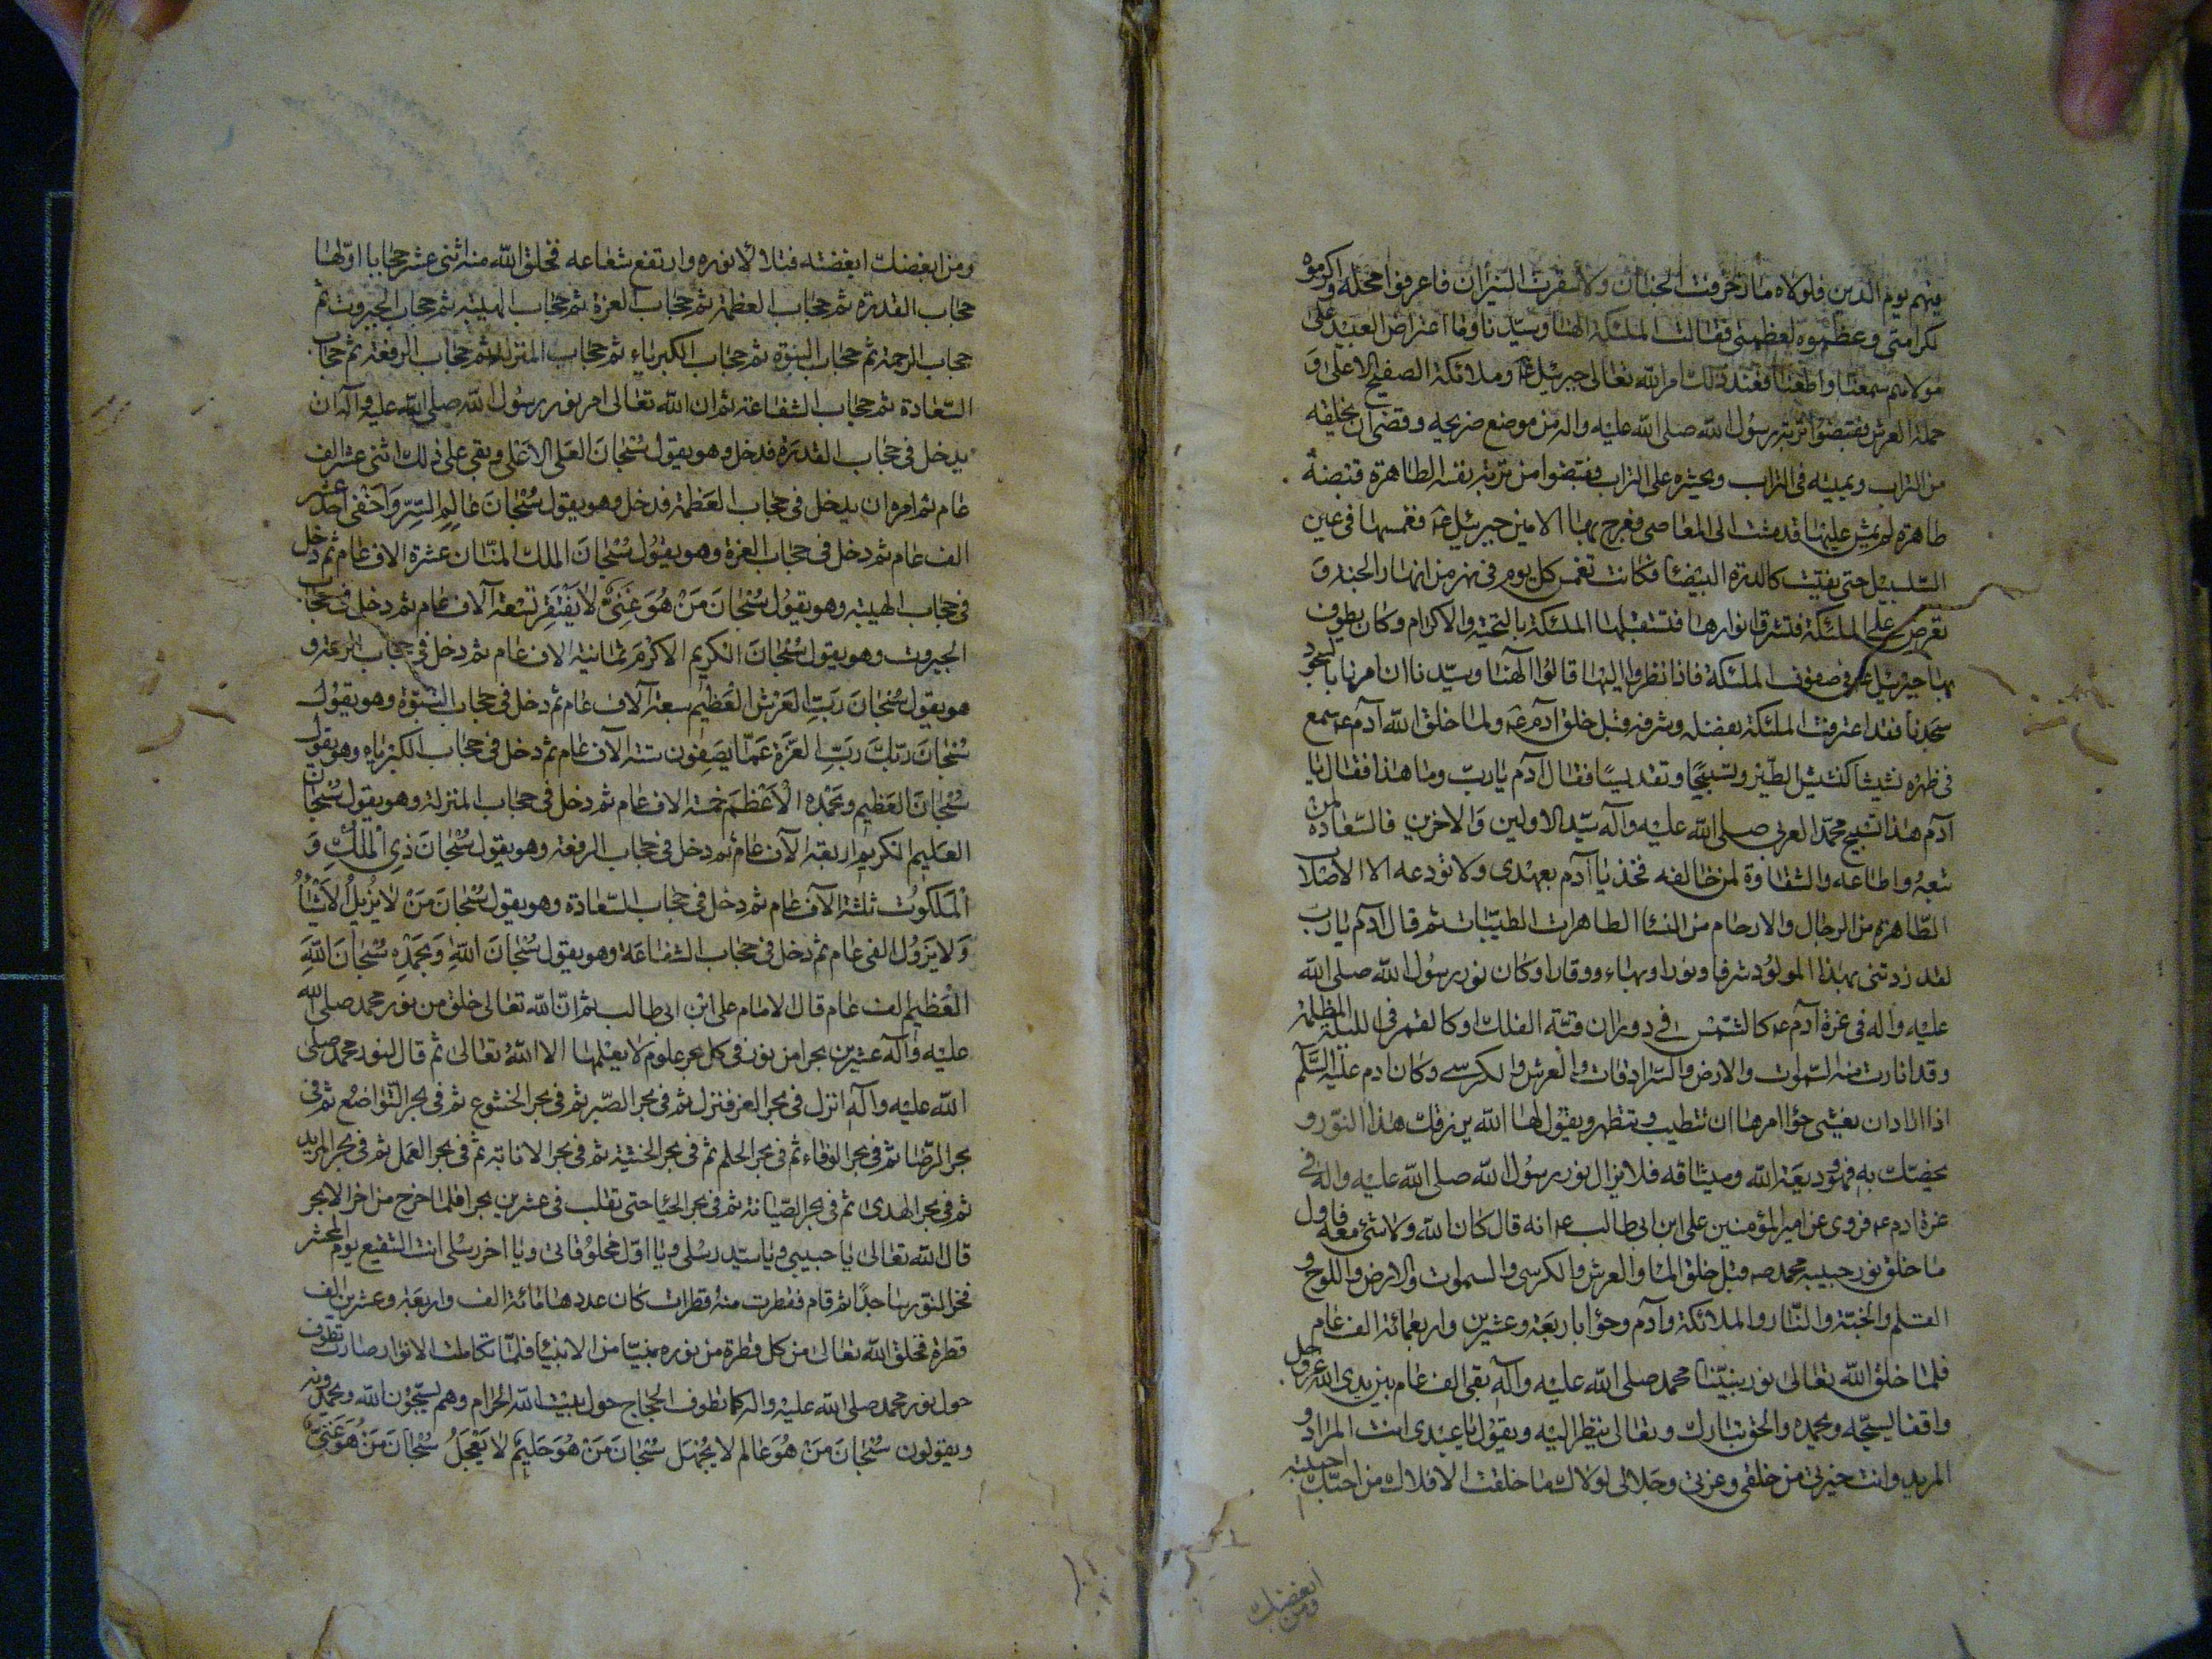 فيهم يوم الدين فلولاه ما زخرفت الجنان ولا سعرت النيران فاعرفوا محله واكرموه
لكرامتي وعظموه لعظمتي فقالت الملئكة الهنا وسيدنا وما اعتراض العبيد على
مولاهم سمعنا واطعنا فعند ذلك امر الله تعالى جبرئيل ع وملائكة الصفيح الاعلى و
حملة العرش فقبضوا تربة رسول الله صلى الله عليه واله من موضع ضريحه وقضى ان يخلقه
من التراب ويميته في التراب ويحشره على التراب فقبضوا من تربة نفسه الطاهرة قبضة
طاهرة لم يمش عليها قدم مشت الى المعاصي فعرج بها الامين جبرئيل ع فغمسها في عين
السلسبيل حتى نقيت كالدرة البيضا فكانت تغمس كل يوم في نهر من انهار الجنة و
تعرض على الملئكة فتشرق انوارها فتستقبلها الملئكة بالتحية والاكرام وكان يطوف
بها جبرئيل ع في صفوف الملئكة فاذا نظروا اليها قالوا الهنا وسيدنا ان امرتنا بالسجود
سجدنا فقد اعترفت الملئكة بفضله وشرفه قبل خلق آدم ع ولما خلق الله آدم ع سمع
في ظهره نشيشا كنشيش الطير وتسبيحا وتقديسا فقال آدم يا رب وما هذا فقال يا
آدم هذا تسبيح محمد العربي صلى الله عليه وآله سيد الاولين والاخرين فالسعادة لمن
تبعه واطاعه والشقاوة لمن خالفه فخذ يا آدم بعهدي ولا تودعه الا الاصلاب
الطاهرة من الرجال والارحام من النساء الطاهرات الطيبات ثم قال آدم يا رب
لقد زدتني بهذا المولود شرفا ونورا وبهاء ووقارا وكان نور رسول الله صلى الله
عليه واله في غرة آدم ع كالشمس في دوران قبة الفلك او كالقمر في الليلة المظلمة
وقد انارت منه السموات والارض والسرادقات والعرش والكرسي وكان ادم عليه السلم
اذا اراد ان يغشى حوا امرها ان تتطيب وتتطهر ويقول لها الله يرزقك هذا النور و
يخصك به فهو وديعة الله وميثاقه فلا يزال نور رسول الله صلى الله عليه واله في
غرة ادم ع فروى عن امير المؤمنين على ابن ابي طالب ع انه قال كان الله ولا شئ معه فاول
ما خلق نور حبيبه محمد ص قبل خلق الماء والعرش والكرسي والسموات والارض واللوح و
القلم والجنة والنار والملائكة وآدم وحوا باربعة وعشرين واربعمائة الف عام
فلما خلق الله تعالى نور نبينا محمد صلى الله عليه وآله بقى الف عام بين يدي الله عز وجل
واقفا يسبحه ويحمده والحق تبارك وتعالى ينظر اليه ويقول يا عبدي انت المراد و
المريد وانت خيرتي من خلقي وعزتي وجلالي لولاك ما خلقت الافلاك من احبك احببته
ومن ابغضك
ومن ابغضك ابغضته فتلألأ نوره وارتفع شعاعه فخلق الله منه اثنى عشر حجابا اولها
حجاب القدرة ثم حجاب العظمة ثم حجاب العزة ثم حجاب الهيبة ثم حجاب الجبروت ثم
حجاب الرحمة ثم حجاب النبوة ثم حجاب الكبرياء ثم حجاب المنزلة ثم حجاب الرفعة ثم حجاب
السعادة ثم حجاب الشفاعة ثم ان الله تعالى امر نور رسول الله صلى الله عليه وآله ان
يدخل في حجاب القدرة فدخل وهو يقول سُبْحَانَ العَلى الاَعْلى وبقى على ذلك اثنى عشر الف
عام ثم امره ان يدخل في حجاب العظمة فدخل وهو يقول سُبْحَانَ عالِمِ السِّرِّ وَاَخْفى احد عشر
الف عام ثم دخل في حجاب العزة وهو يقول سُبْحَانَ الملك المنان عشرة الاف عام ثم دخل
في حجاب الهيبة وهو يقول سُبْحَانَ مَنْ هُوَ غَنِيٌّ لا يَفْتَقِر تسعة آلاف عام ثم دخل في حجاب
الجبروت وهو يقول سُبْحَانَ الكريم الاكرم ثمانية الاف عام ثم دخل في حجاب الرحمة و
هو يقول سُبْحَانَ رَبِّ العَرْشِ الْعَظيم سبعة آلاف عام ثم دخل في حجاب النبوة وهو يقول
سُبْحَانَ رَبِّكَ رَبِّ العِزَّة عَمَّا يَصِفُون ستة آلاف عام ثم دخل في حجاب الكبرياء وهو يقول
سُبْحَانَ العَظيم وبحَمْدِه الْاَعْظَم خمسة الاف عام ثم دخل في حجاب المنزلة وهو يقول سُبْحَانَ
العليم الكريم اربعة آلاف عام ثم دخل في حجاب الرفعة وهو يقول سُبْحَانَ ذِي الْمُلْكِ وَ
الْمَلَكُوت ثلثة آلاف عام ثم دخل في حجاب السعادة وهو يقول سُبْحَانَ مَنْ لا يُزيلُ الاَشْيَاء
وَلا يَزُول الفي عام ثم دخل في حجاب الشفاعة وهو يقول سُبْحَانَ اللهِ وَبِحَمْدِه سُبْحَانَ اللهِ
الْعَظيم الف عام قال الامام على ابن ابى طالب ثم ان الله تعالى خلق من نور محمد صلى الله
عليه وآله عشرين بحرا من نور في كل بحر علوم لا يعلمها الا الله تعالى ثم قال لنور محمد صلى
الله عليه وآله انزل في بحر العز فنزل ثم في بحر الصبر ثم في بحر الخشوع ثم في بحر التواضع ثم في
بحر الرضا ثم في بحر الوفاء ثم في بحر الحلم ثم في بحر الخشية ثم في بحر الانابة ثم في بحر العمل ثم في بحر المزيد
ثم في بحر الهدى ثم في بحر الصيانة ثم في بحر الحيا حتى تقلب في عشرين بحرا فلما خرج من اخر الابحر
قال الله تعالى يا حبيبي ويا سيد رسلي ويا اول مخلوقاتي ويا اخر رسلي انت الشفيع يوم المحشر
فخر النور ساجدا ثم قام فقطرت منه قطرات كان عددها مائة الف واربعة وعشرين الف
قطرة فخلق الله تعالى من كل قطرة من نوره نبيا من الانبيا فلما تكاملت الانوار صارت تطوف
حول نور محمد صلى الله عليه واله كما تطوف الحجاج حول بيت الله الحرام وهم يسبحون الله ويحمدونه
ويقولون سُبْحَانَ مَنْ هُوَ عَالم لا يَجْهَل سُبْحَانَ مَنْ هُوَ حَليم لا يَعْجَلُ سُبْحَانَ مَنْ هُوَ غَنِيٌّ